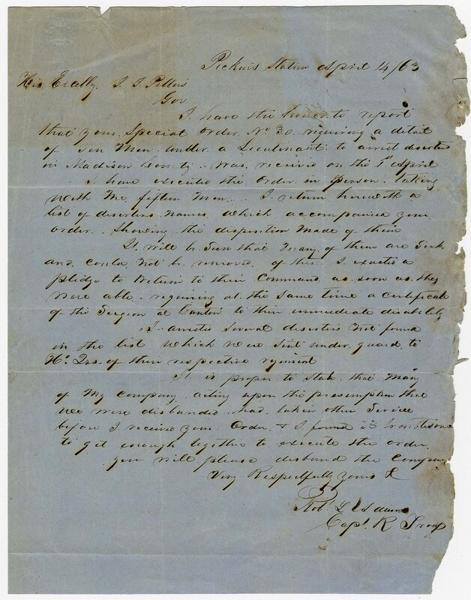 Pickens Station April 14/63
His Excelly. J. J. Pettus
Gov
I have the honor to report
that your Special Order No 30. requiring a detail
of ten Men under a Lieutenant to arrest deserters
in Madison County. was received on the 1st April
I have executed the order in person. taking
with me fifteen men. I return herewith a
list of deserters names which accompanied your
order. Showing the disposition made of them
It will be seen that many of them are Sick
and could not be removed. of these I exacted a
pledge to return to their Command as soon as they
were able. requiring at the same time a certificate
of the Surgeon at Canton to their immediate disability
I arrested several deserters not found
in the list which were sent under guard to
Hd. Qrs. of their respective regiment
It is proper to state that many
of my company acting upon the presumption that
we were disbanded. had taken other Service
before I received your Order. & I found it troublesome
to get enough together to execute the order.
you will please disband the Company
Very Respectfully Yours &
Adams
Capt. R Troop